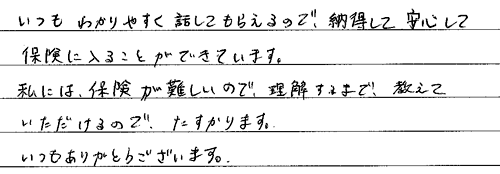 いつも わかりやすく 話してもらえるので、納得して 安心して
保険に入ることができています。
私には、保険が難しいので、理解するまで、教えて
いただけるので、たすかります。
いつもありがとうございます。